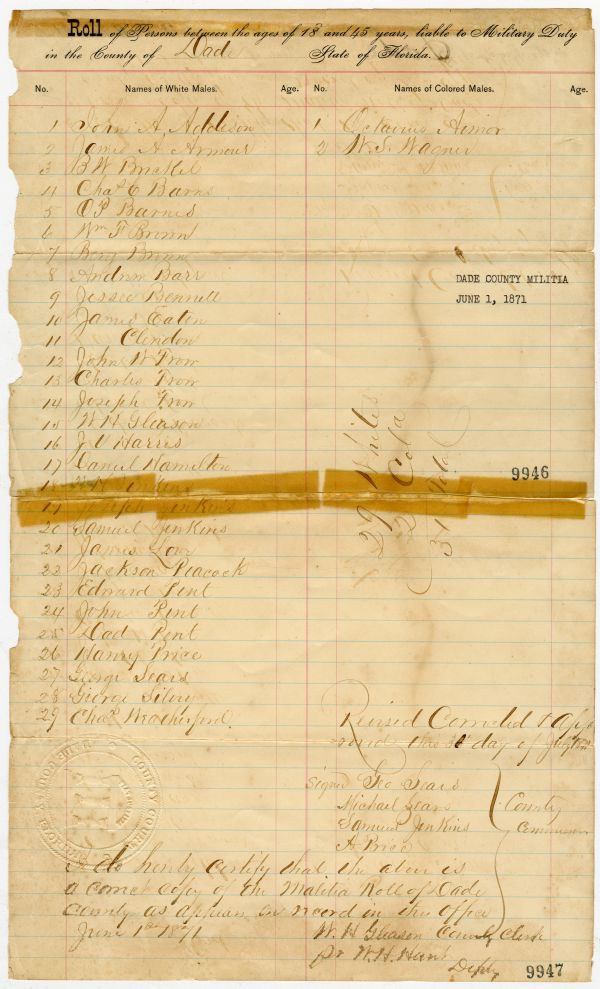 Roll of Persons between the ages of 18 and 45 years, liable to Military Duty
in the County of Dade State of Florida.
No. Names of White Males. Age. No. Names of Colored Males. Age.
1 John A. Addison
2 James A Armour
3 B W Brickel
4 Chas E Barns
5 O P Barnes
6 Wm F Brown
7 Benj Brown
8 Andrew Barr
9 Jessee Bennett
10 James Eaton
11 Clendon
12 John W Frow
13 Charles Frow
14 Joseph Frow
15 W H Gleason
16 J V Harris
17 Daniel Hamilton
18
19 Joseph Jenkins
20 Samuel Jenkins
21 James Low
22 Jackson Peacock
23 Edward Pent
24 John Pent
25 Dad Pent
26 Henry Price
27 George Sears
28 George
29 Chas Weatherford.
1 Octavius Aimor
2 W. S. Wagner
DADE COUNTY MILITIA
JUNE 1, 1871
29 Whites
2 Cold
31
9946
Revised Corrected &
this day of
Signed Geo Sears
Michael Sears
Samuel Jenkins
A Price
County
I do hereby certify that the above is
a correct copy of the Malitia Roll of Dade
County as appears on record in this Office
June 1st 1871
W. H Gleason County Clerk
pr W. H. Hunt
Depty
9947